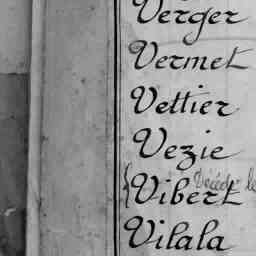 Verger
Vermet
Vettier
Vezie
Décédé le
{Vibert
Vilala